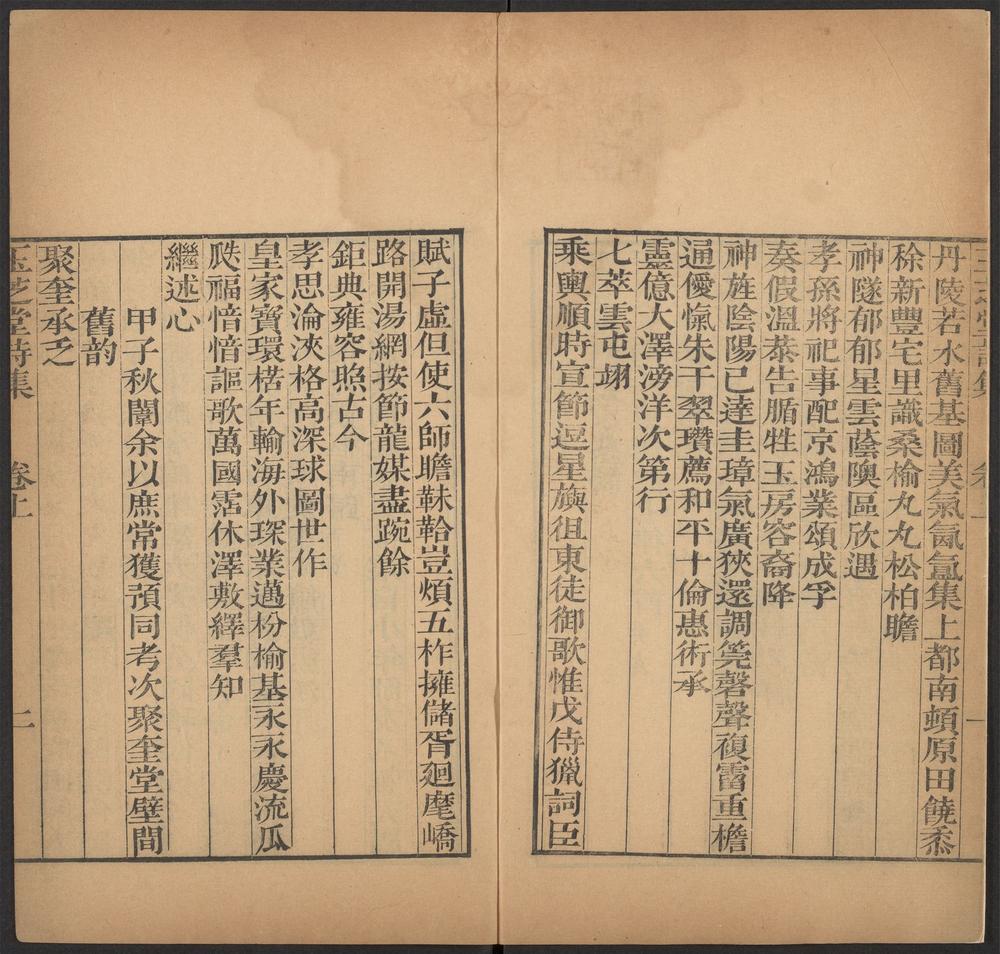 丹陵若水舊基圖美氣氤氳集上都南頓原田饒黍
稌新豐宅里識桑榆丸丸松柏瞻
神隧郁郁星雲蔭隩區欣遇
孝孫將祀事配京鴻業頌成孚
奏假溫恭告腯牲玉房容裔降
神旌陰陽已達圭璋氣廣狹還調筦磬聲複霤重檐
通僾愾朱干翠瓚薦和平十倫惠術承
靈億大澤滂洋次第行
七萃雲屯翊
乘輿順時宣節逗星旟徂東徒御歌惟戊侍獵詞臣
賦子虛但使六師瞻韎韐豈煩五柞擁儲胥廻麾嶠
路開湯網按節龍媒盡踠餘
鉅典雍容煦古今
孝思淪浹格高深球圖世作
皇家寶環楛年輸海外琛業邁枌榆基永永慶流瓜
瓞福愔愔謳歌萬國霑休澤敷繹羣知
繼述心
甲子秋闈余以庶常獲預同考次聚奎堂壁間
舊韵
聚奎承乏
玉芝堂詩集 卷上 二